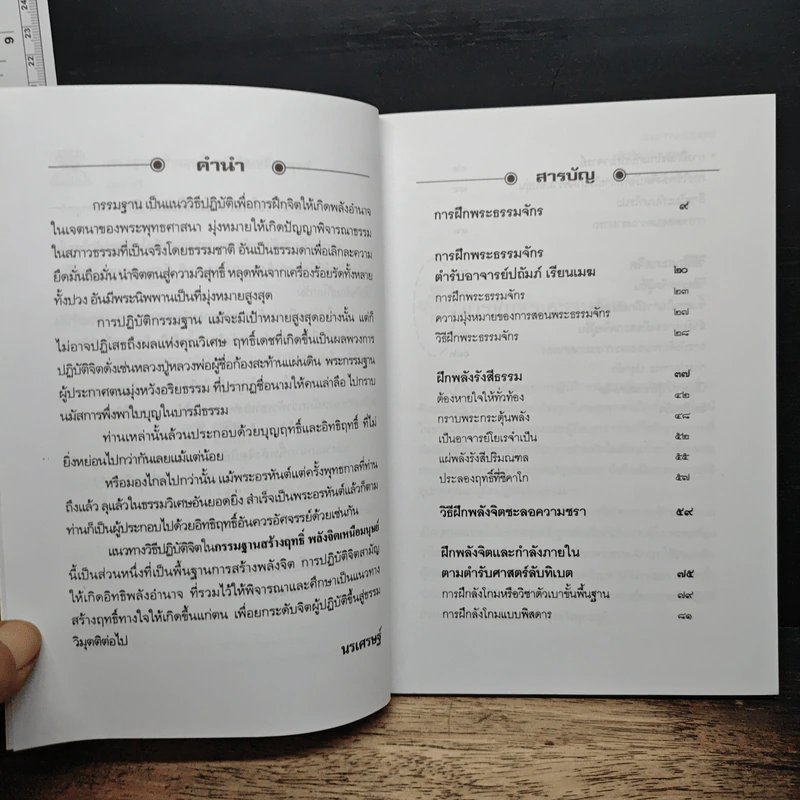 คำนำ
กรรมฐาน เป็นแนววิธีปฏิบัติเพื่อการฝึกจิตให้เกิดพลังอำนาจ
ในเจตนาของพระพุทธศาสนา มุ่งหมายให้เกิดปัญญาพิจารณาธรรม
ในสภาวธรรมที่เป็นจริงโดยธรรมชาติ อันเป็นธรรมดาเพื่อเลิกละความ
ยึดมั่นถือมั่น นำจิตตนสู่ความวิสุทธิ์ หลุดพ้นจากเครื่องร้อยรัดทั้งหลาย
ทั้งปวง อันมีพระนิพพานเป็นที่มุ่งหมายสูงสุด
การปฏิบัติกรรมฐาน แม้จะมีเป้าหมายสูงสุดอย่างนั้น แต่ก็
ไม่อาจปฏิเสธถึงผลแห่งคุณวิเศษ ฤทธิ์เดชที่เกิดขึ้นเป็นผลพวงการ
ปฏิบัติจิตดั่งเช่นหลวงปู่หลวงพ่อผู้ชื่อก้องสะท้านแผ่นดิน พระกรรมฐาน
ผู้ประกาศตนมุ่งหวังอริยธรรม ที่ปรากฏชื่อนามให้คนเล่าลือ ไปกราบ
นมัสการพึ่งพาใบบุญในบารมีธรรม
ท่านเหล่านั้นล้วนประกอบด้วยบุญฤทธิ์และอิทธิฤทธิ์ ที่ไม่
ยิ่งหย่อนไปกว่ากันเลยแม้แต่น้อย
หรือมองไกลไปกว่านั้น แม้พระอรหันต์แต่ครั้งพุทธกาลที่ท่าน
ถึงแล้ว ลุแล้วในธรรมวิเศษอันยอดยิ่ง สำเร็จเป็นพระอรหันต์แล้วก็ตาม
ท่านก็เป็นผู้ประกอบไปด้วยอิทธิฤทธิ์อันควรอัศจรรย์ด้วยเช่นกัน
แนวทางวิธีปฏิบัติจิตในกรรมฐานสร้างฤทธิ์ พลังจิตเหนือมนุษย์
นี้เป็นส่วนหนึ่งที่เป็นพื้นฐานการสร้างพลังจิต การปฏิบัติจิตสามัญ
ให้เกิดอิทธิพลังอำนาจ ที่รวมไว้ให้พิจารณาและศึกษาเป็นแนวทาง
สร้างฤทธิ์ทางใจให้เกิดขึ้นแก่ตน เพื่อยกระดับจิตผู้ปฏิบัติขึ้นสู่ธรรม
วิมุตติต่อไป
นรเศรษฐ์
สารบัญ
การฝึกพระธรรมจักร ๙
การฝึกพระธรรมจักร
ตำรับอาจารย์ปถัมภ์ เรียนเมฆ ๒๐
การฝึกพระธรรมจักร ๒๓
ความมุ่งหมายของการสอนพระธรรมจักร ๒๗
วิธีฝึกพระธรรมจักร ๒๘
ฝึกพลังรังสีธรรม ๓๗
ต้องหายใจให้ทั่วท้อง ๔๒
กราบพระกระตุ้นพลัง ๔๘
เป็นอาจารย์โยเรจำเป็น ๕๒
แผ่พลังรังสีปริมณฑล ๕๕
ประลองฤทธิ์ที่ชิคาโก ๕๗
วิธีฝึกพลังจิตชะลอความชรา ๕๙
ฝึกพลังจิตและกำลังภายใน
ตามตำรับศาสตร์ลับทิเบต ๗๕
การฝึกลังโกมหรือวิชาตัวเบาขั้นพื้นฐาน ๗๙
การฝึกลังโกมแบบพิสดาร ๘๑